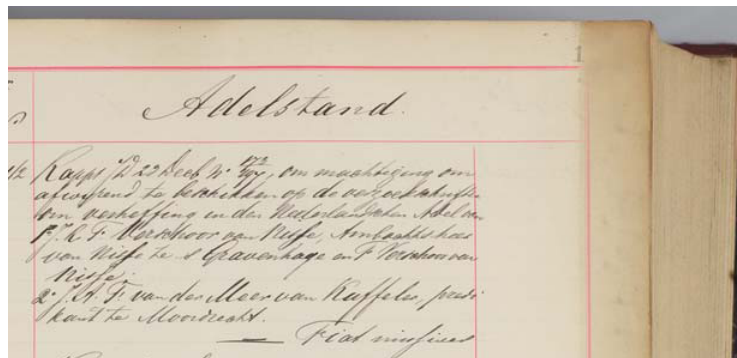 Adelstand.
1/2 Rapp. J.D. 22 Decb. No. 172, om machtiging om
afwijzend te beschikken op de verzoekschriften
om verheffing in den Nederlandschen Adel van
1o J. R. F. Verschoor van Nisse, Ambachtsheer
van Nisse te s Gravenhage en F Verschoor van
Nisse.
2o J. A. F. van der Meer van Kuffeler, predi
kant te Moordrecht.
— Fiat missives